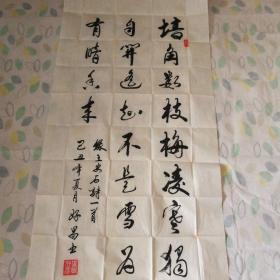 墙角数枝梅凌寒獨
自開遥知不是雪为
有暗香来
錄王安石詩一首
己丑年夏月 书